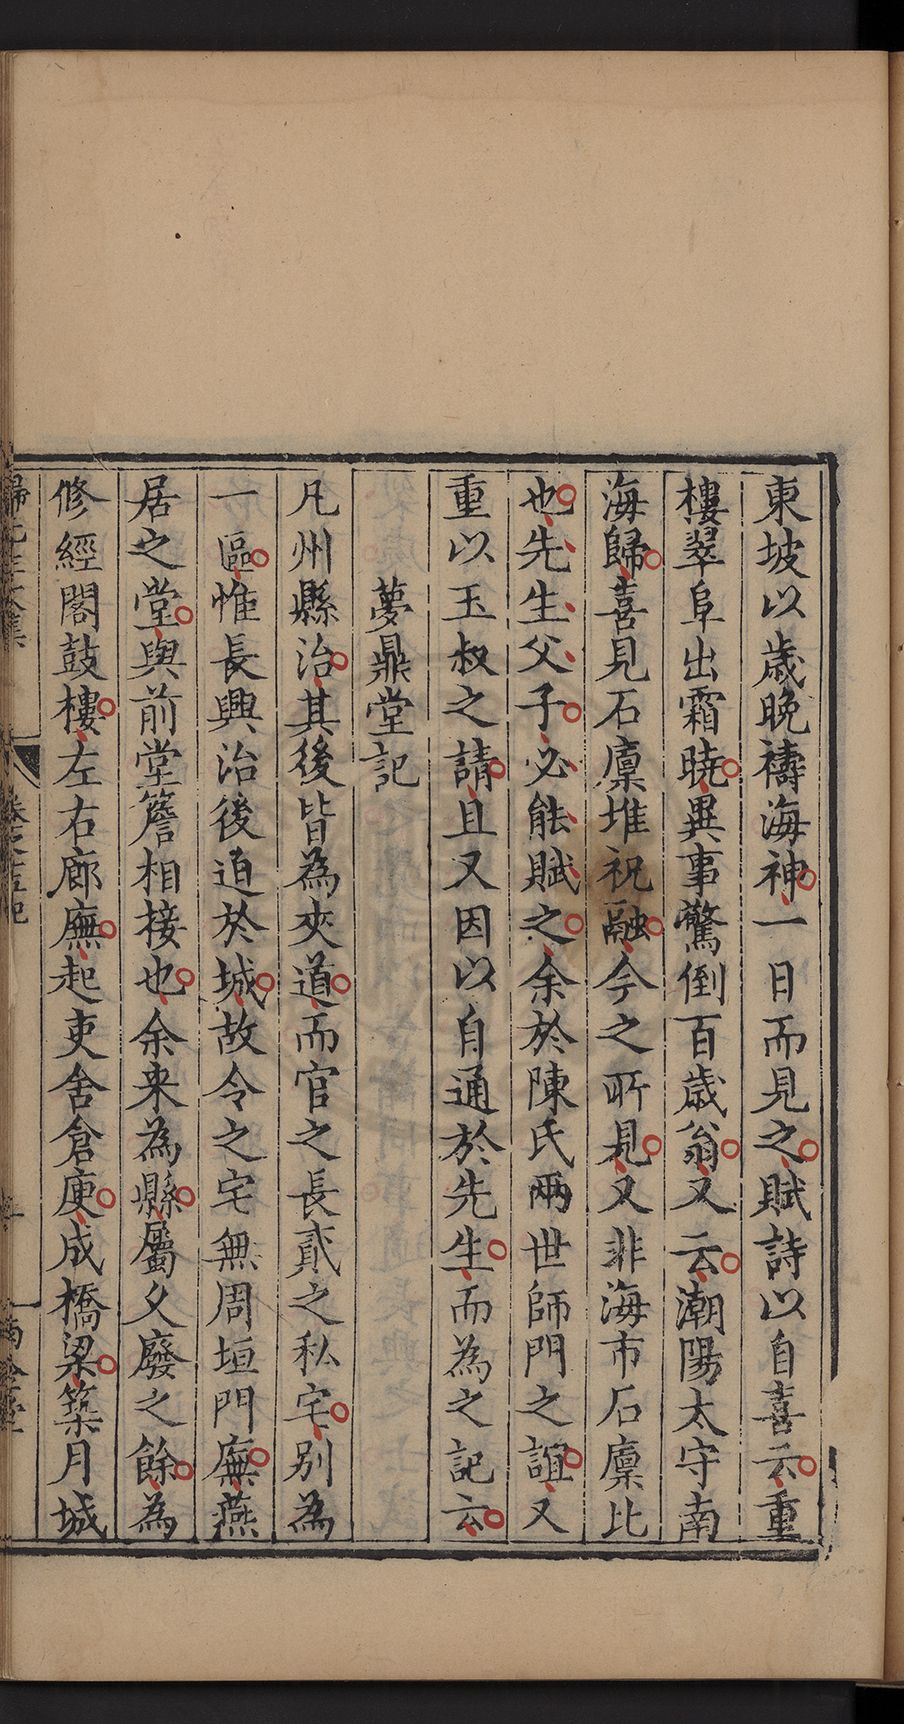 東坡以歳晚禱海神一日而見之賦詩以自喜云重
樓翠阜出霜暁異事驚倒百歳翁又云潮陽太守南
海歸喜見石廪堆祝融今之所見又非海市石廪比
也先生父子必能賦之余於陳氏兩世師門之誼又
重以玉叔之請且又因以自通於先生而為之記云
夢鼎堂記
凡州縣治其後皆為夾道而官之長貳之私宅別為
一區惟長興治後迫於城故令之宅無周垣門廡燕
居之堂與前堂簷相接也余来為縣屬久廢之餘為
修經閣鼓樓左右廊廡起吏舍倉庾成橋梁築月城